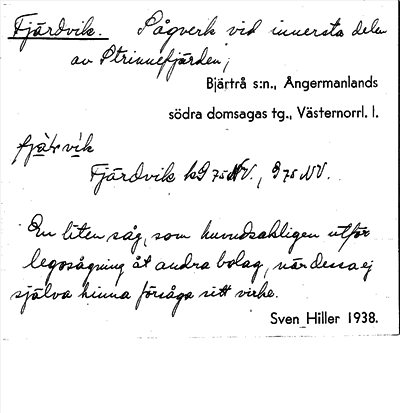 Fjärdvik. Sågverk vid innersta delen
av Strinnefjärden;
Bjärtrå s:n., Ångermanlands
södra domsagas tg., Västernorrl. l.
Fjärdvik kG 75 NV., G 75 NV.
En liten såg, som huvudsakligen utför
legosågning åt andra bolag, när dessa ej
själva hinna försåga sitt virke.
Sven Hiller 1938.